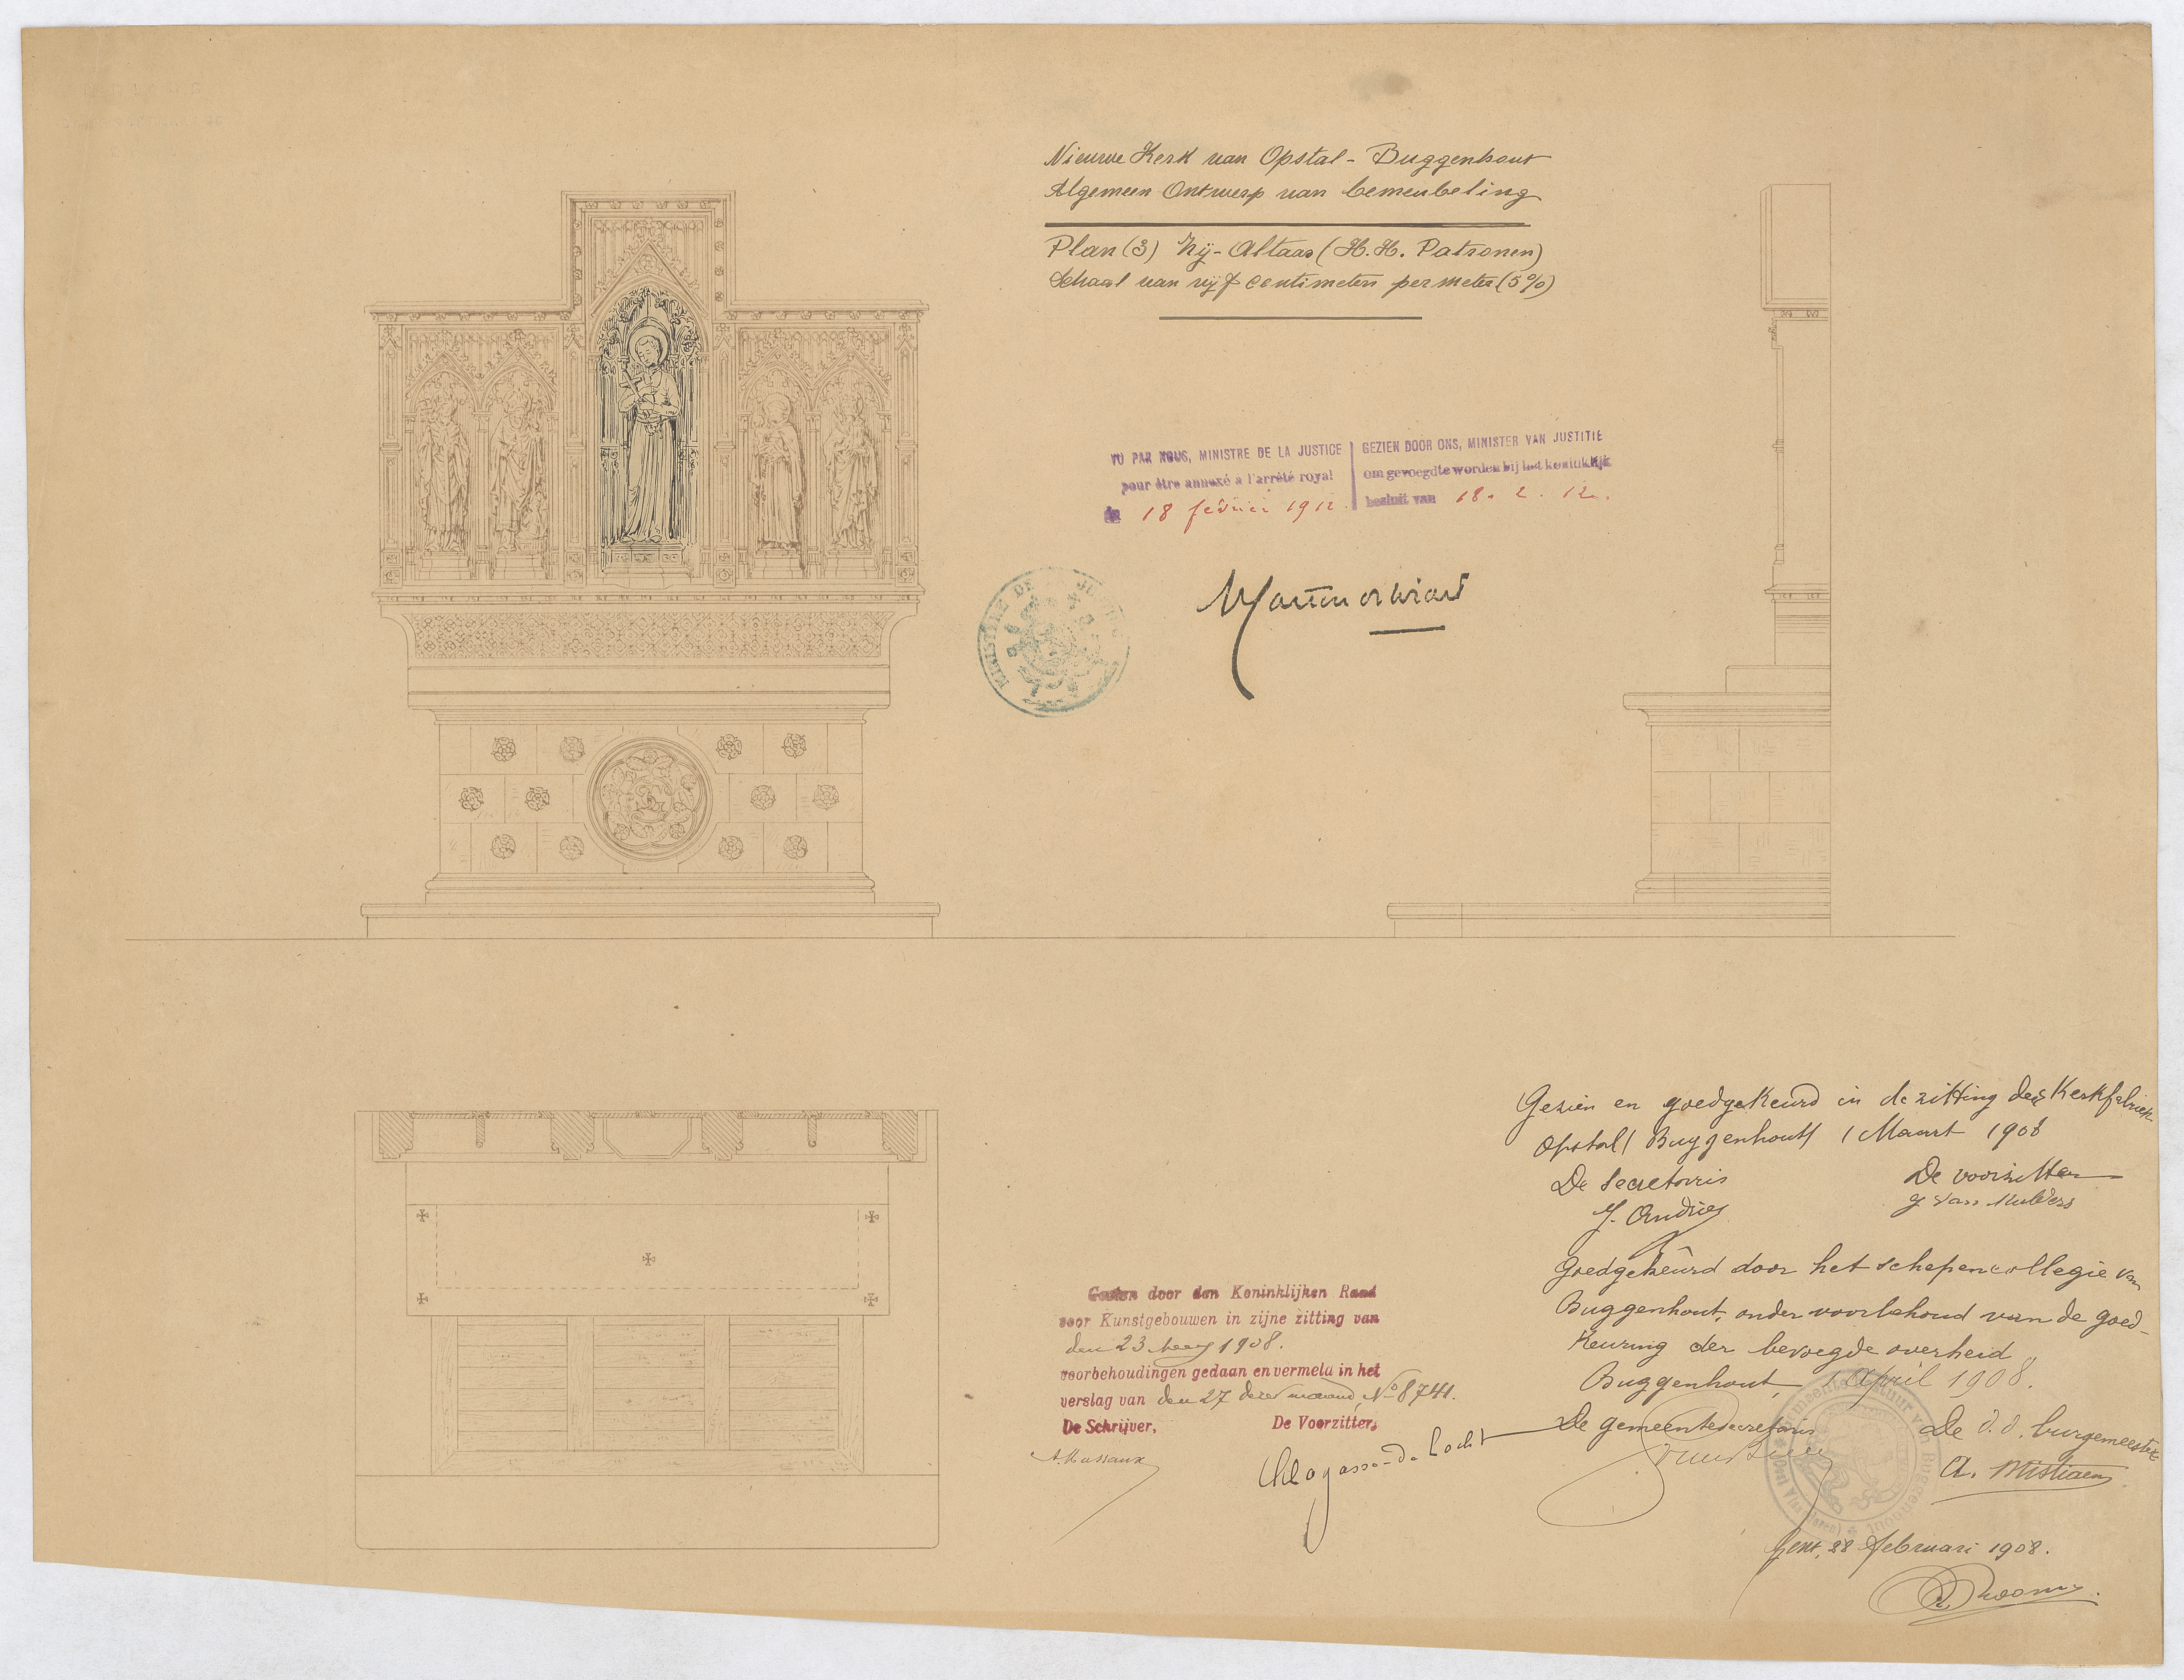 Nieuwe Kerk van Opstal - Buggenhout
Algemeen Ontwerp van bemeubeling
Plan (3) Zij-Altaar (H.H. Patronen)
Schaal van vijf centimeters per meter (5%)
VU PAR NOUS, MINISTRE DE LA JUSTICE
pour être annexé a l'arrêté royal
du 18 février 1912.
GEZIEN DOOR ONS, MINISTER VAN JUSTITIE
om gevoegd te worden bij het koninklijk
besluit van 18. 2. 12.
MINISTÈRE DE
Gezien en goedgekeurd in de zitting der Kerkfabriek
Opstal (Buggenhout) 1 Maart 1908
De Secretaris
De voorzitter
J. Andries
Goedgekeurd door het schepencollegie van
Buggenhout, onder voorbehoud van de goed-
keuring der bevoegde overheid
Buggenhout, 1 April 1908.
De gemeentesecretaris
De d.d. burgemeester
A. Mistiaen
Gezien door den Koninklijken Raad
voor Kunstgebouwen in zijne zitting van
den 23 1908.
voorbehoudingen gedaan en vermeld in het
verslag van den 27 dezer maand, No 8741.
De Schrijver,
De Voorzitter,
A. Massaux
Gent, 28 Februari 1908.